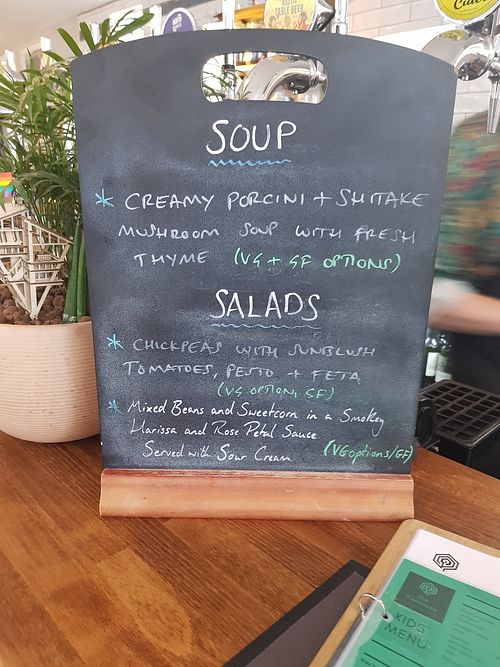 TABLE BEER
SOUP
* CREAMY PORCINI + SHITAKE
MUSHROOM SOUP WITH FRESH
THYME (VG + GF OPTIONS)
SALADS
* CHICKPEAS WITH SUNBLUSH
TOMATOES, PESTO + FETA
(VG OPTION, GF)
* Mixed Beans and Sweetcorn in a Smokey
Harissa and Rose Petal Sauce
Served with Sour Cream (VG options/GF)
KIDS'
MENU